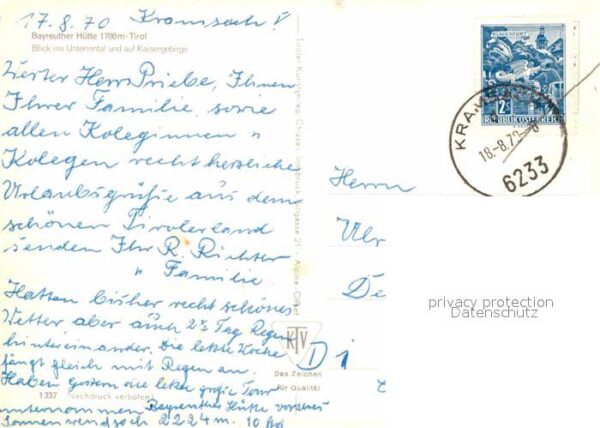 17.8.70 Kramsach/T
Bayreuther Hütte 1700m-Tirol
Blick ins Unterinntal und auf Kaisergebirge
Werter Herr Priebe, Ihnen
Ihrer Familie, sowie
allen Koleginnen u
Kolegen recht herzliche
Urlaubsgrüße aus dem
schönen Tirolerland
senden Ihr R. Richter
u Familie.
Hatten bisher recht schönes
Wetter, aber auch 2½ Tag Regen
hintereinander. Die letzte Woche
fängt gleich mit Regen an.
Haben gestern die letzte große Tour
unternommen Bayreuther Hütte
Sonnwendjoch 2224 m. 10
1337 Nachdruck verboten!
KTV
Das Zeichen
für Qualität
KLAGENFURT
2
REPUBLIK ÖSTERREICH
18.-8.70
6233
Herrn
De
D
privacy protection
Datenschutz